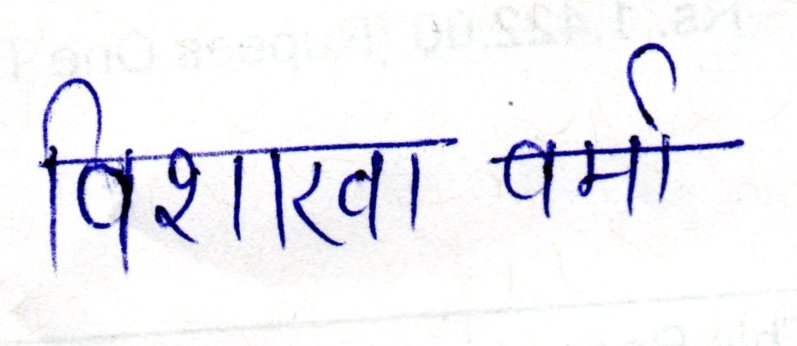 विशाखा वर्मा